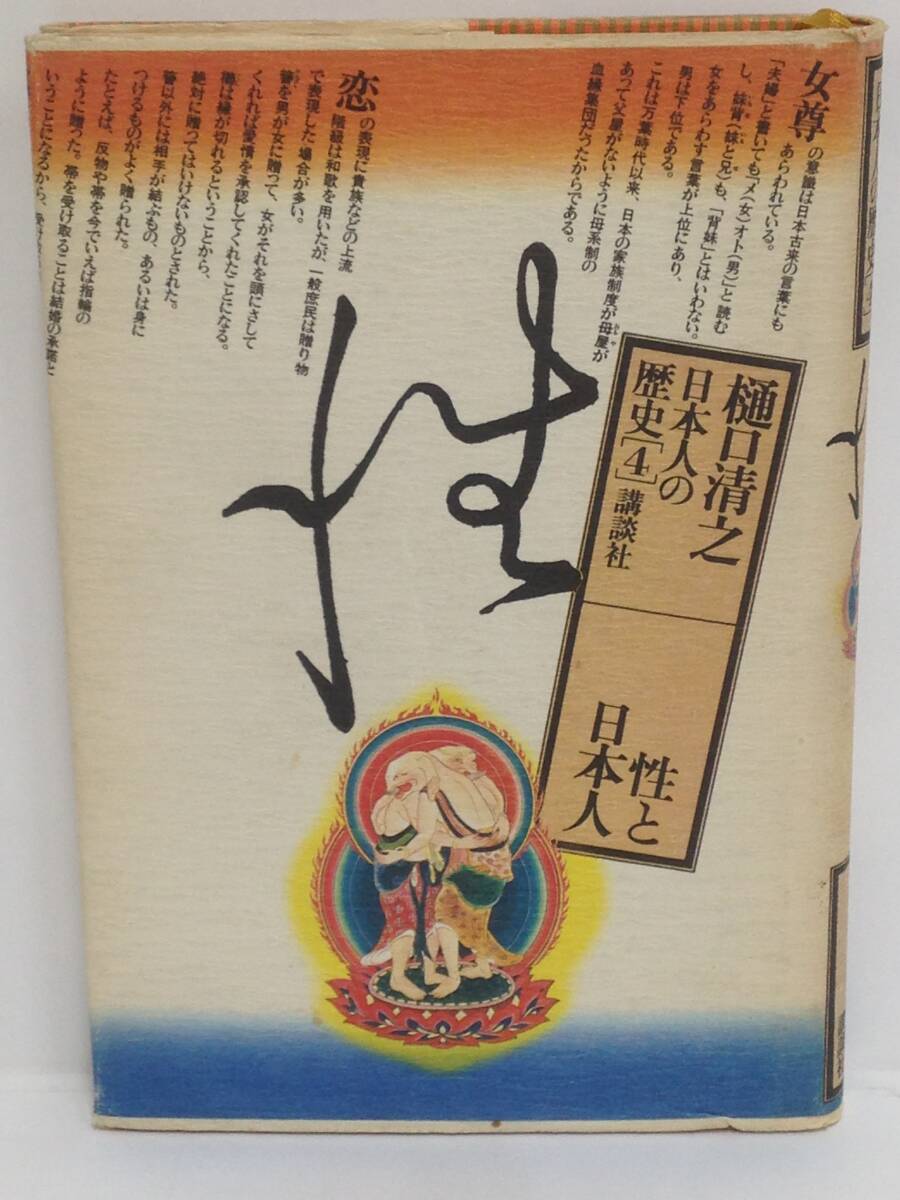 女尊の意識は日本古来の言葉にも
あらわれている。
「夫婦」と書いても「メ(女)オト(男)」と読む
し、妹背(妹と兄)も、「背妹」とはいわない。
女をあらわす言葉が上位にあり、
男は下位である。
これは万葉時代以来、日本の家族制度が母屋が
あって父屋がないように母系制の
血縁集団だったからである。
恋の表現に貴族などの上流
階級は和歌を用いたが、一般庶民は贈り物
で表現した場合が多い。
簪を男が女に贈って、女がそれを頭にさして
くれれば愛情を承認してくれたことになる。
櫛は縁が切れるということから、
絶対に贈ってはいけないものとされた。
簪以外には相手が結ぶもの、あるいは身に
つけるものがよく贈られた。
たとえば、反物や帯を今でいえば指輪の
ように贈った。帯を受け取ることは結婚の承諾と
いうことになるから、
性
樋口清之
日本人の
歴史[4]講談社
性と
日本人